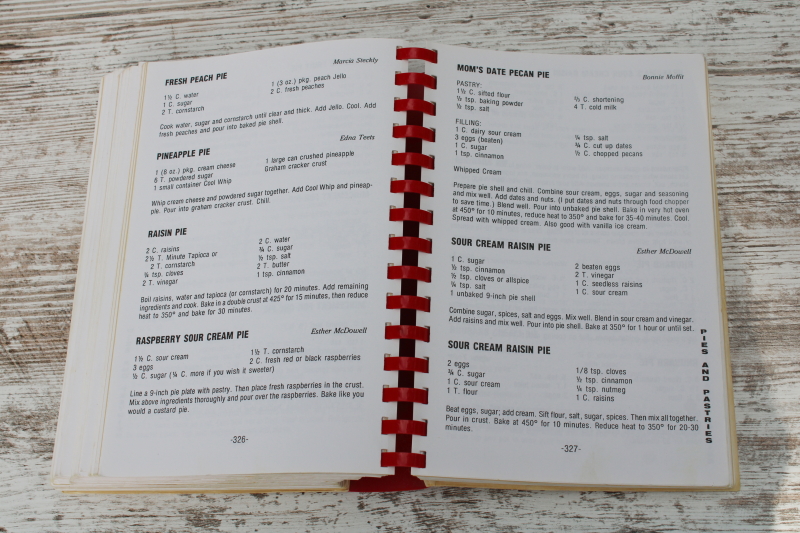 Marcia Steckly
FRESH PEACH PIE
1½ C. water
1 C. sugar
2 T. cornstarch
1 (3 oz.) pkg. peach Jello
2 C. fresh peaches
Cook water, sugar and cornstarch until clear and thick. Add Jello. Cool. Add
fresh peaches and pour into baked pie shell.
Edna Teets
PINEAPPLE PIE
1 (8 oz.) pkg. cream cheese
6 T. powdered sugar
1 small container Cool Whip
1 large can crushed pineapple
Graham cracker crust
Whip cream cheese and powdered sugar together. Add Cool Whip and pineap-
ple. Pour into graham cracker crust. Chill.
RAISIN PIE
2 C. raisins
2½ T. Minute Tapioca or
2 T. cornstarch
¼ tsp. cloves
2 T. vinegar
2 C. water
¾ C. sugar
½ tsp. salt
2 T. butter
1 tsp. cinnamon
Boil raisins, water and tapioca (or cornstarch) for 20 minutes. Add remaining
ingredients and cook. Bake in a double crust at 425° for 15 minutes, then reduce
heat to 350° and bake for 30 minutes.
Esther McDowell
RASPBERRY SOUR CREAM PIE
1½ C. sour cream
3 eggs
½ C. sugar (¼ C. more if you wish it sweeter)
1½ T. cornstarch
2 C. fresh red or black raspberries
Line a 9-inch pie plate with pastry. Then place fresh raspberries in the crust.
Mix above ingredients thoroughly and pour over the raspberries. Bake like you
would a custard pie.
-326-
MOM'S DATE PECAN PIE
Bonnie Moffit
PASTRY:
1½ C. sifted flour
½ tsp. baking powder
½ tsp. salt
C. shortening
4 T. cold milk
FILLING:
1 C. dairy sour cream
3 eggs (beaten)
1 C. sugar
1 tsp. cinnamon
¼ tsp. salt
¾ C. cut up dates
C. chopped pecans
Whipped Cream
Prepare pie shell and chill. Combine sour cream, eggs, sugar and seasoning
and mix well. Add dates and nuts. (I put dates and nuts through food chopper
to save time.) Blend well. Pour into unbaked pie shell. Bake in very hot oven
at 450° for 10 minutes, reduce heat to 350° and bake for 35-40 minutes. Cool.
Spread with whipped cream. Also good with vanilla ice cream.
SOUR CREAM RAISIN PIE
Esther McDowell
1 C. sugar
½ tsp. cinnamon
½ tsp. cloves or allspice
¼ tsp. salt
1 unbaked 9-inch pie shell
2 beaten eggs
2 T. vinegar
1 C. seedless raisins
1 C. sour cream
Combine sugar, spices, salt and eggs. Mix well. Blend in sour cream and vinegar.
Add raisins and mix well. Pour into pie shell. Bake at 350° for 1 hour or until set.
SOUR CREAM RAISIN PIE
2 eggs
¾ C. sugar
1 C. sour cream
1 T. flour
1/8 tsp. cloves
½ tsp. cinnamon
¼ tsp. nutmeg
1 C. raisins
Beat eggs, sugar; add cream. Sift flour, salt, sugar, spices. Then mix all together.
Pour in crust. Bake at 450° for 10 minutes. Reduce heat to 350° for 20-30
minutes.
-327-
PIES AND PASTRIES